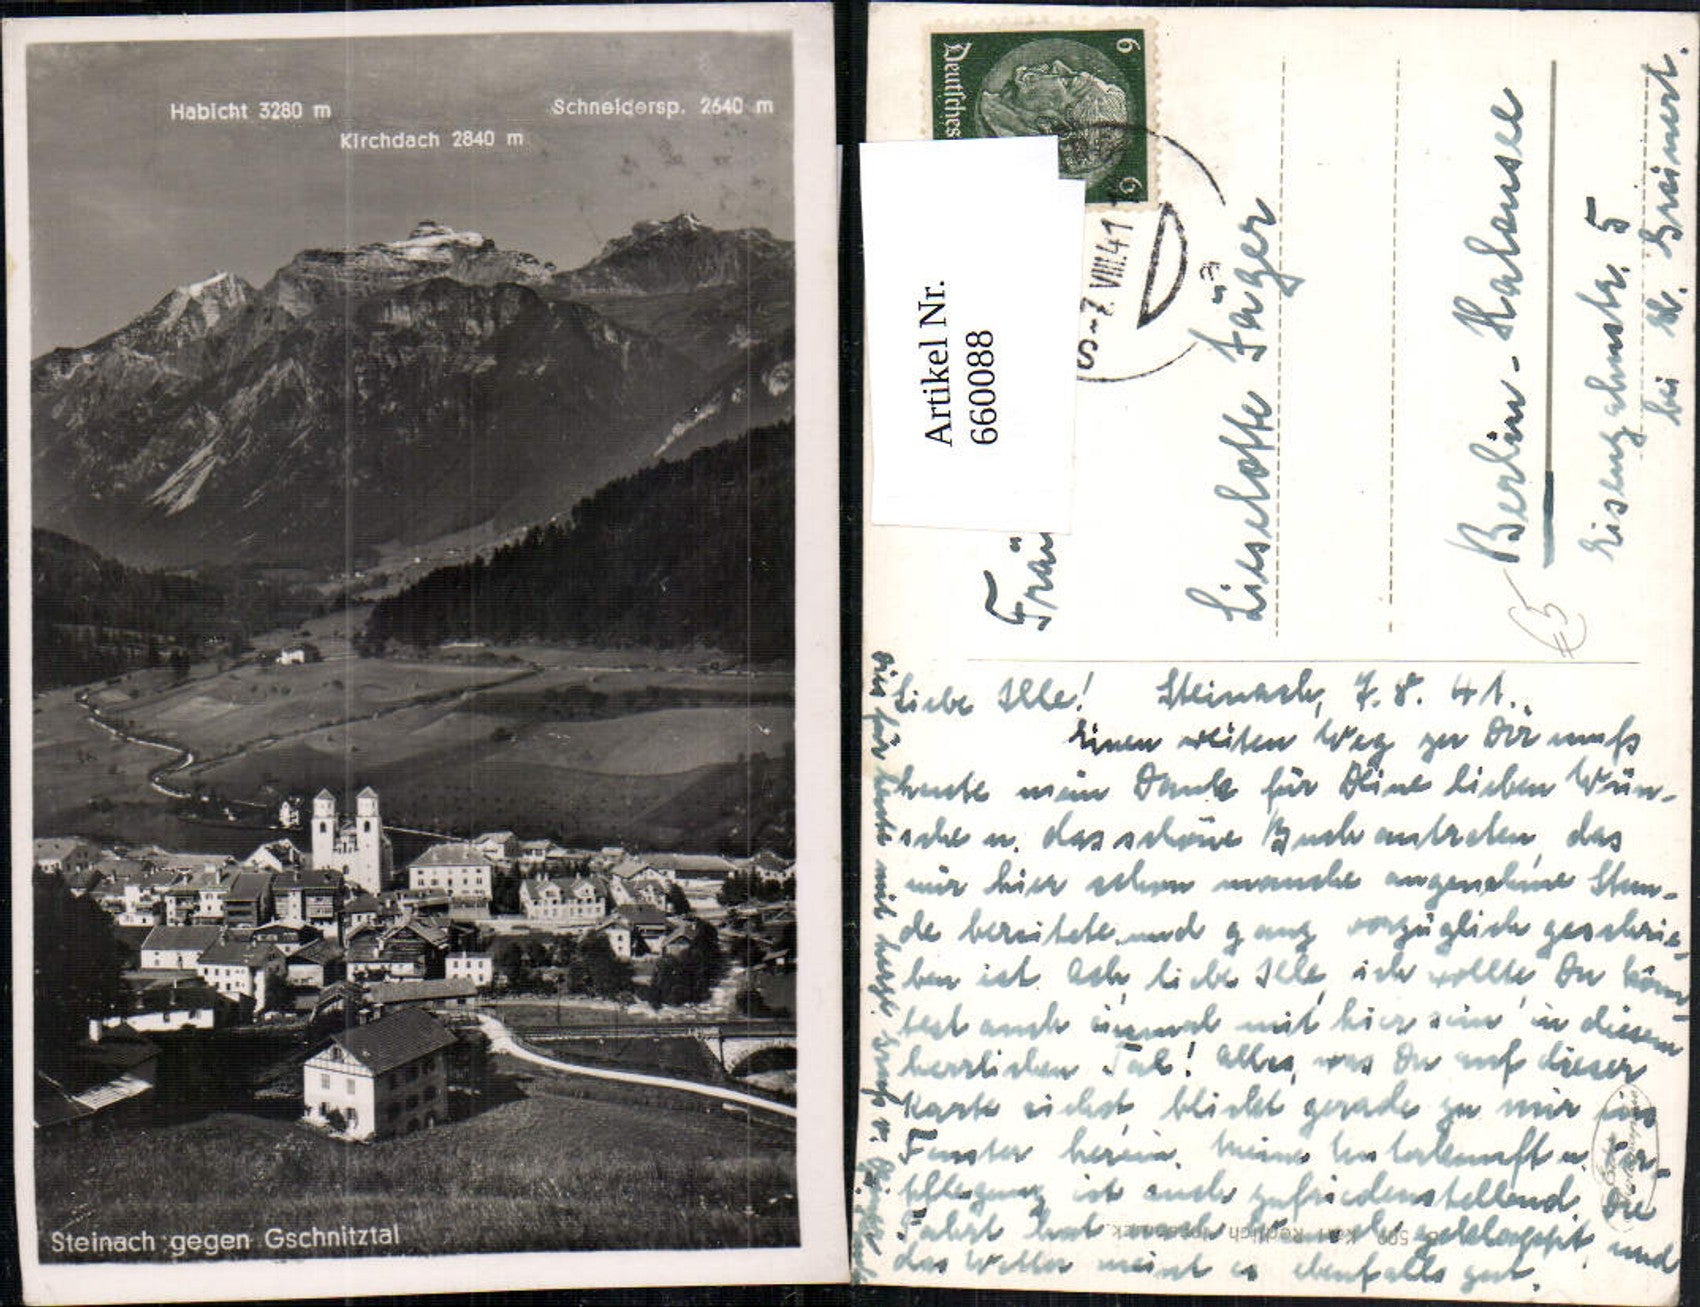 Habicht 3280 m
Kirchdach 2840 m
Schneidersp. 2640 m
Steinach gegen Gschnitztal
Deutsches
6
6
S -7.VIII.41
Artikel Nr.
660088
Fräu
Lieselotte Jäger
Berlin-Halensee
Eisenzahnstr. 5
bei
€5
Liebe Ille! Steinach, 7.8.41.
Einen weiten Weg zu Dir muß
heute mein Dank für Deine lieben Wün-
sche u. das schöne Buch antreten, das
mir hier schon manche angenehme Stun-
de bereitete und ganz vorzüglich geschrie-
ben ist. Ach, liebe Ille, ich wollte Du könn-
test auch einmal mit hier sein in diesem
herrlichen Tal! Alles, was Du auf dieser
Karte siehst blickt gerade zu mir ins
Fenster herein. Meine Unterkunft u. Ver-
pflegung ist auch zufriedenstellend. Die
Fahrt hat auch geklappt und
das Wetter meint es ebenfalls gut.
Dies für heute mit herzl. Gruß